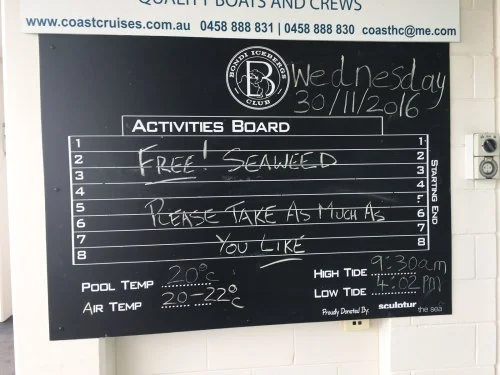 QUALITY BOATS AND CREWS
www.coastcruises.com.au 0458 888 831 | 0458 888 830 coasthc@me.com
BONDI ICEBERGS
B
CLUB
Wednesday
30/11/2016
ACTIVITIES BOARD
1 1
2 FREE! SEAWEED 2
3 3
4 4
5 5
6 PLEASE TAKE AS MUCH AS 6
7 7
8 YOU LIKE 8
STARTING END
POOL TEMP 20°C
AIR TEMP 20-22°C
HIGH TIDE 9:30am
LOW TIDE 4:02 pm
Proudly Donated By: sculptur the sea